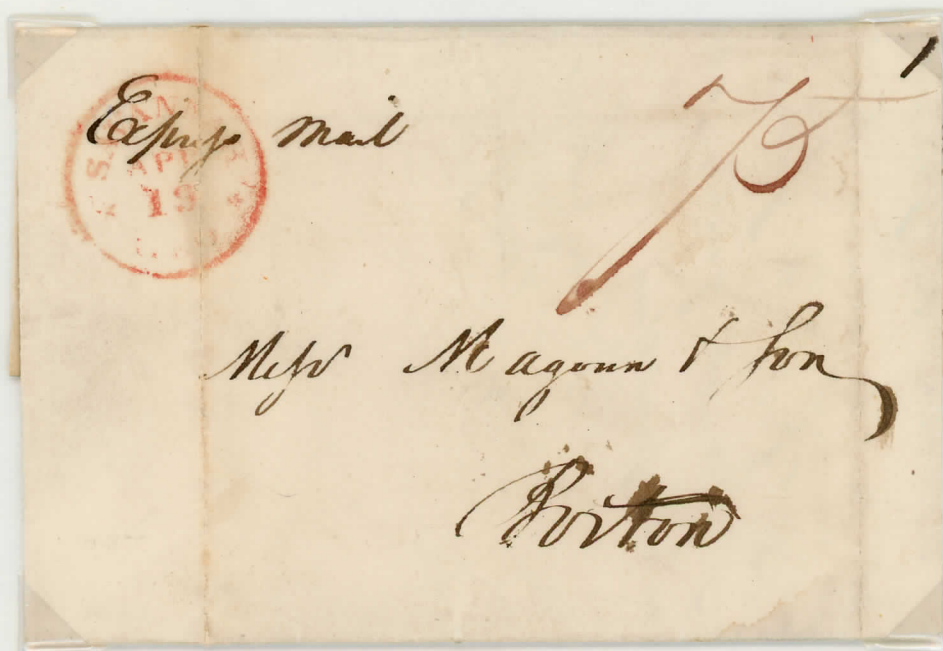 Express Mail
75
APR
19
Messrs Magoun & Son
Boston